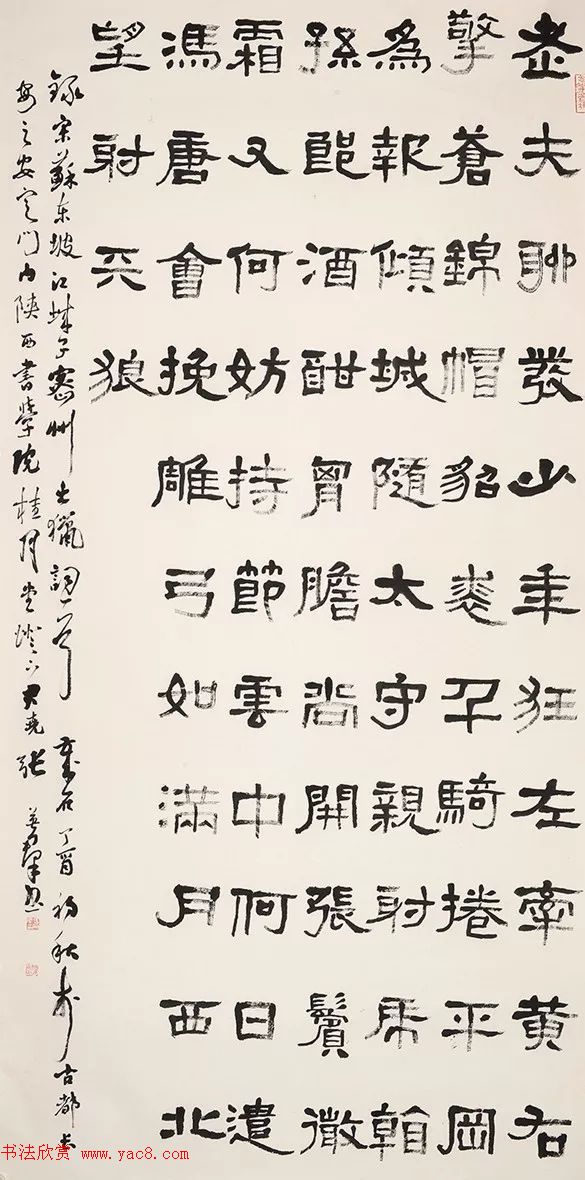 老夫聊發少年狂左牽黃右
擎蒼錦帽貂裘千騎捲平岡
為報傾城隨太守親射虎看
孫郎酒酣胷膽尚開張鬢微
霜又何妨持節雲中何日遣
馮唐會挽雕弓如滿月西北
望射天狼
錄宋蘇東坡江城子密州出獵詞一首 歲在丁酉初秋於古都長
安之安定門內陝西書學院桂月堂燈下 張
书法欣赏 www.yac8.com